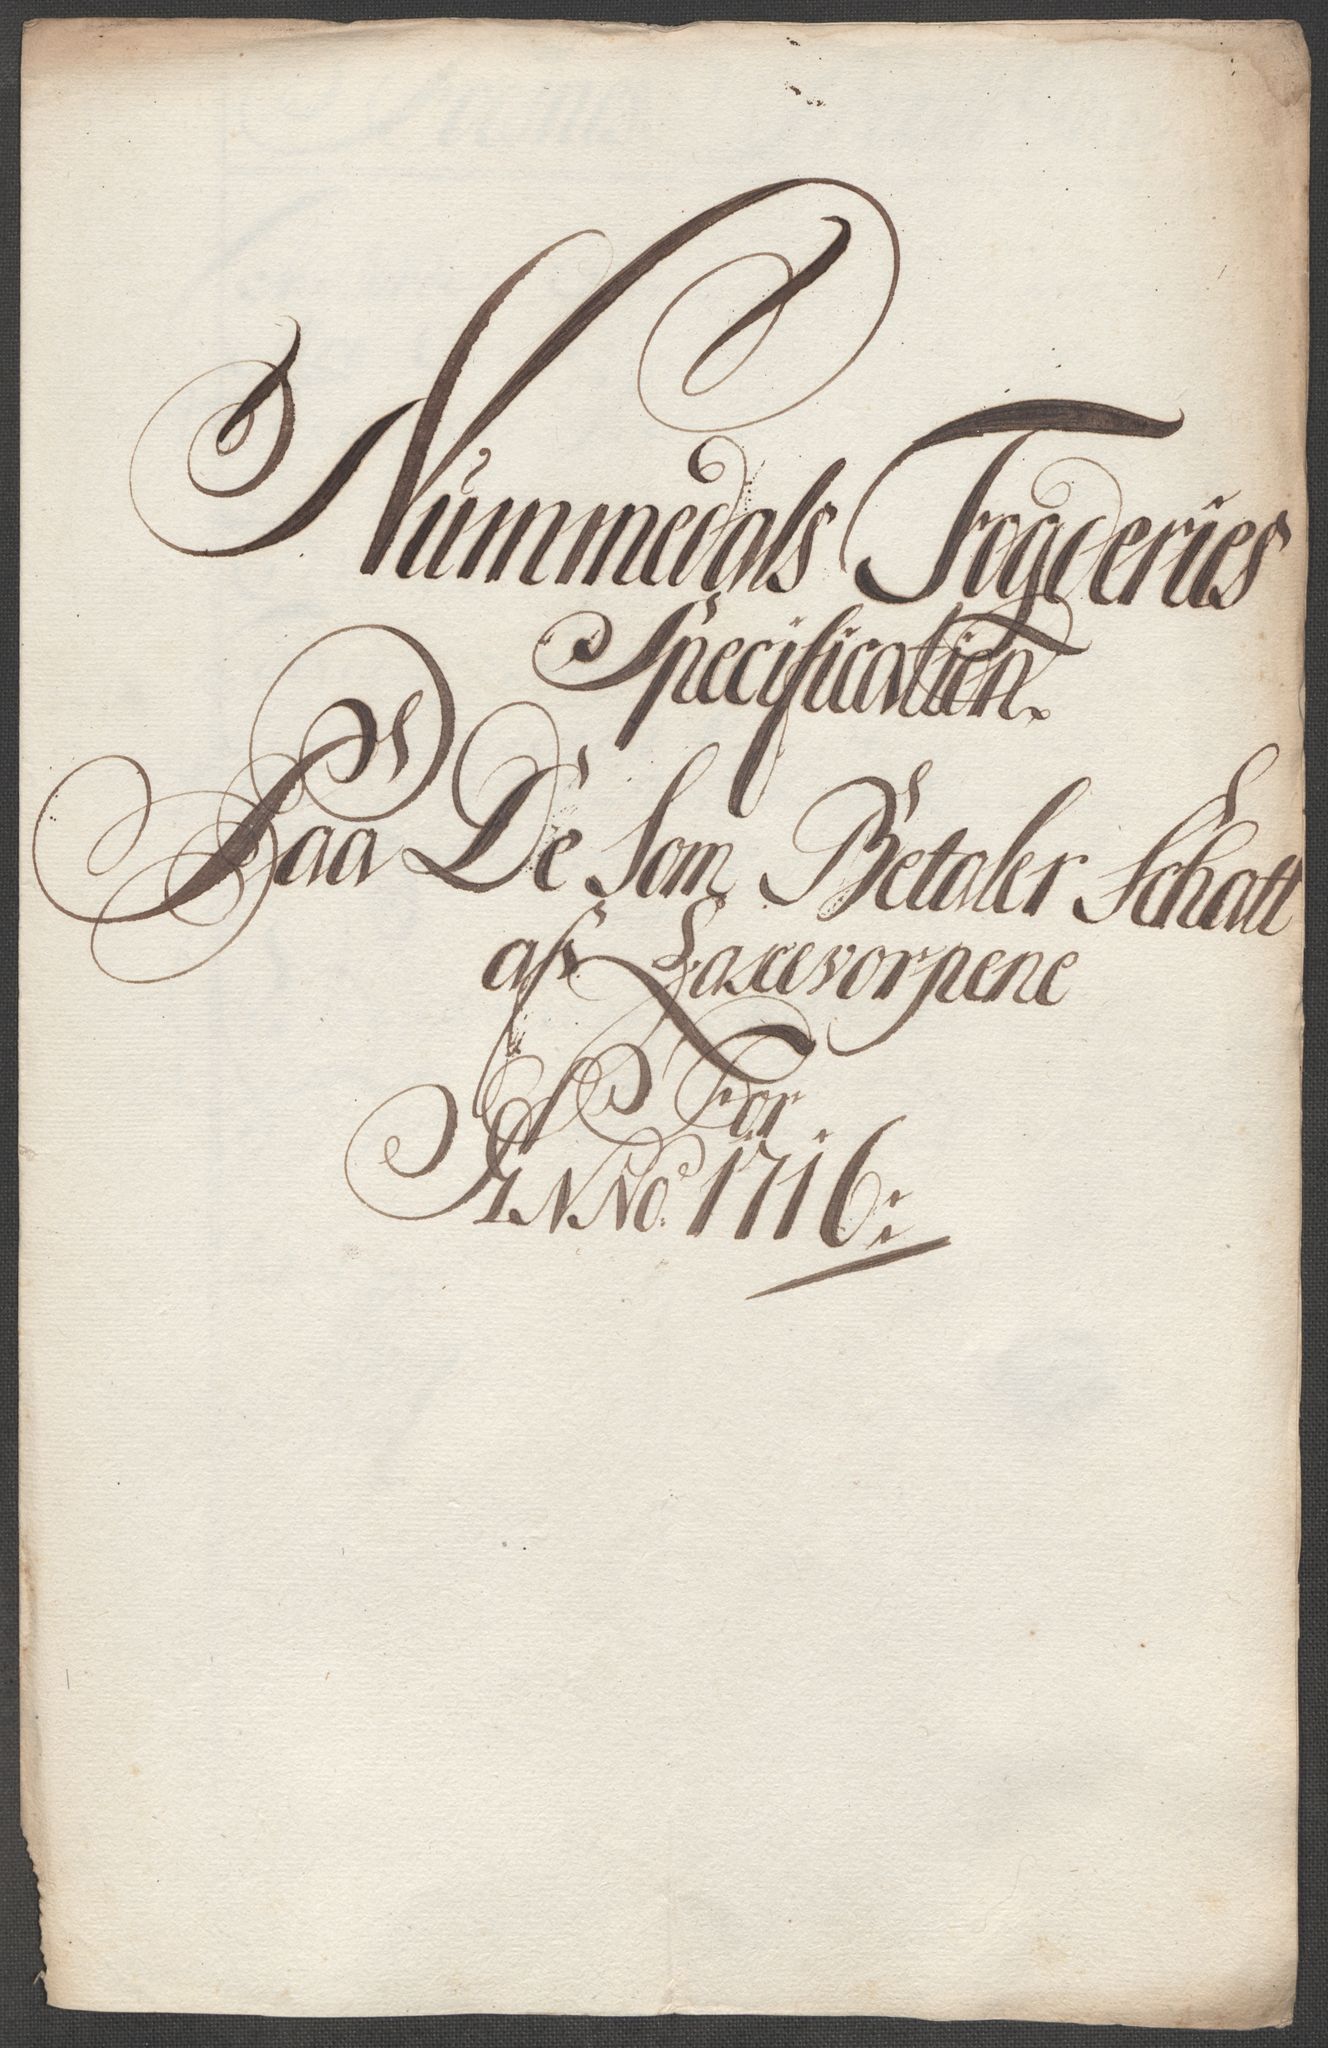 Nummedals Fogderies
Specification.
Paa De Som Betaler Schatt
af Laxevorpene
For
ANNO. 1716: